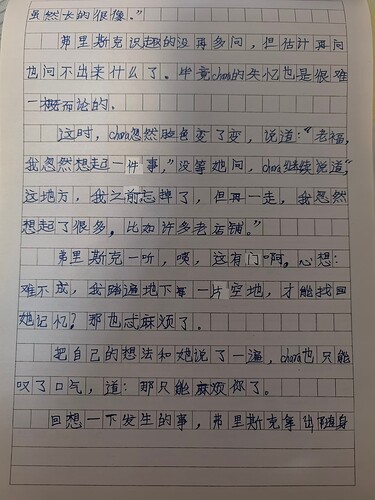 虽然长的很像。”
弗里斯克识趣的没再多问，但估计再问
也问不出来什么了。毕竟chara的失忆也是很难
一概而论的。
这时，chara忽然脸色变了变，说道：“老福，
我忽然想起一件事，”没等她问，chara继续说道“，
这地方，我之前忘掉了，但再一走，我忽然
想起了很多，比如许多老店铺。”
弗里斯克一听，咦，这有门啊。心想：
难不成，我踏遍地下每一片空地，才能找回
她记忆？那也忒麻烦了。
把自己的想法和她说了一遍，chara也只能
叹了口气，道：那只能麻烦你了。
回想一下发生的事，弗里斯克拿出随身